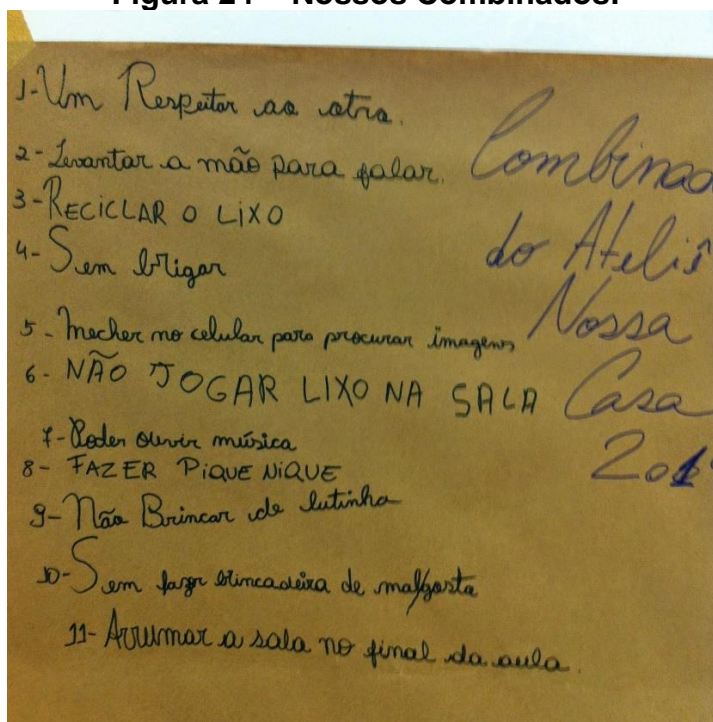 Figura 21 – Nossos Combinados.
1- Um Respeitar ao otro.
2- Levantar a mão para falar.
3- RECICLAR O LIXO
4- Sem brigar
5- Mecher no celular para procurar imagens
6- NÃO JOGAR LIXO NA SALA
7- Poder ouvir música
8- FAZER PiQUE NiQUE
9- Não Brincar de lutinha
10- Sem fazer brincadeira de
11- Arrumar a sala no final da aula.
Combinad
do Ateliê
Nossa
Casa